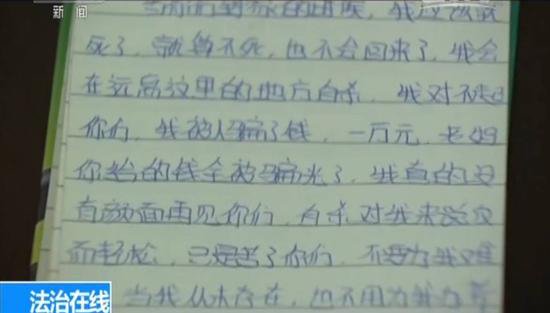 新闻
当你们看到的时候，我应该就
死了，就算不死，也不会回来了，我会
在远离这里的地方自杀，我对不起
你们，我被人骗了钱，一万元，老妈
你给的钱全被骗光了，我真的没
有颜面再见你们，自杀对我来说反
而轻松，只是苦了你们，不要为我难
当我从未存在，也不用为我
法治在线